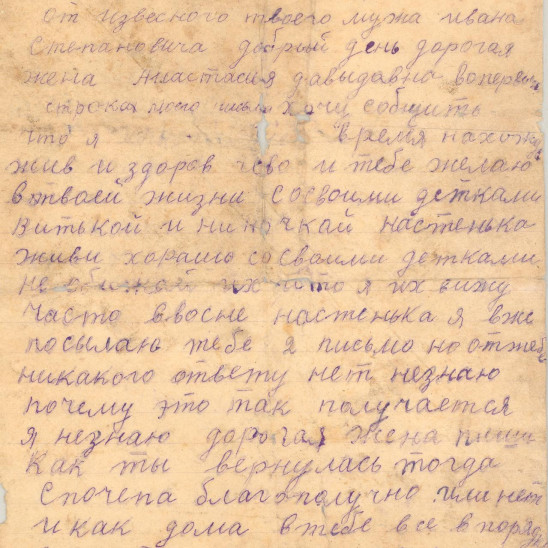 от Извесного твоего мужа ивана
Степановича добрый день дорогая
жена Анастасия давыдавна вопервы
строках моего письма хочу собщить
что я время нахожу
жив и здоров чево и тебе желаю
втвоей жизни Сосвоими детками
Витькой и ниночкай настенька
живи хорашо сосвоими детками
не обижай их ато я их вижу
часто ввосне настенька я вже
посылаю тебе 2 письмо но оттеб
никакого ответу нет незнаю
почему это так получается
я незнаю дорогая жена пиши
Как ты вернулась тогда
Спочепа благополучно или нет
и как дома втебе все впоряд